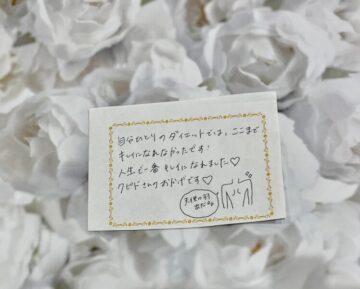 自分ひとりのダイエットでは、ここまで
キレイになれなかったです!
人生で一番 キレイになれました♡
クピドさんの おかげです♡
天使の羽